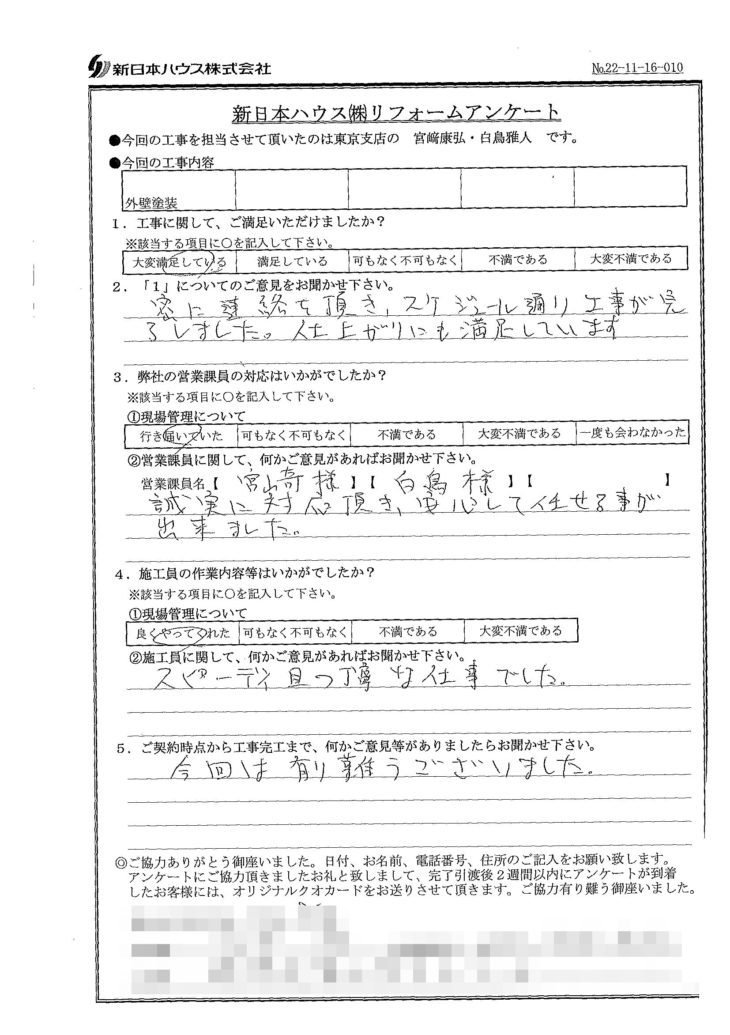 新日本ハウス株式会社
№22-11-16-010
新日本ハウス㈱リフォームアンケート
●今回の工事を担当させて頂いたのは東京支店の 宮﨑康弘・白鳥雅人 です。
●今回の工事内容
外壁塗装
1．工事に関して、ご満足いただけましたか？
※該当する項目に○を記入して下さい。
大変満足している 満足している 可もなく不可もなく 不満である 大変不満である
2．「1」についてのご意見をお聞かせ下さい。
密に連絡を頂き、スケジュール通り工事が完
了しました。仕上がりにも満足しています
3．弊社の営業課員の対応はいかがでしたか？
※該当する項目に○を記入して下さい。
①現場管理について
行き届いていた 可もなく不可もなく 不満である 大変不満である 一度も会わなかった
②営業課員に関して、何かご意見があればお聞かせ下さい。
営業課員名【 宮崎様 】【 白鳥様 】【 】
誠実に対応頂き、安心して任せる事が
出来ました。
4．施工員の作業内容等はいかがでしたか？
※該当する項目に○を記入して下さい。
①現場管理について
良くやってくれた 可もなく不可もなく 不満である 大変不満である
②施工員に関して、何かご意見があればお聞かせ下さい。
スピーディ且つ丁寧な仕事でした。
5．ご契約時点から工事完工まで、何かご意見等がありましたらお聞かせ下さい。
今回は有り難うございました。
◎ご協力ありがとう御座いました。日付、お名前、電話番号、住所のご記入をお願い致します。
アンケートにご協力頂きましたお礼と致しまして、完了引渡後２週間以内にアンケートが到着
したお客様には、オリジナルクオカードをお送りさせて頂きます。ご協力有り難う御座いました。